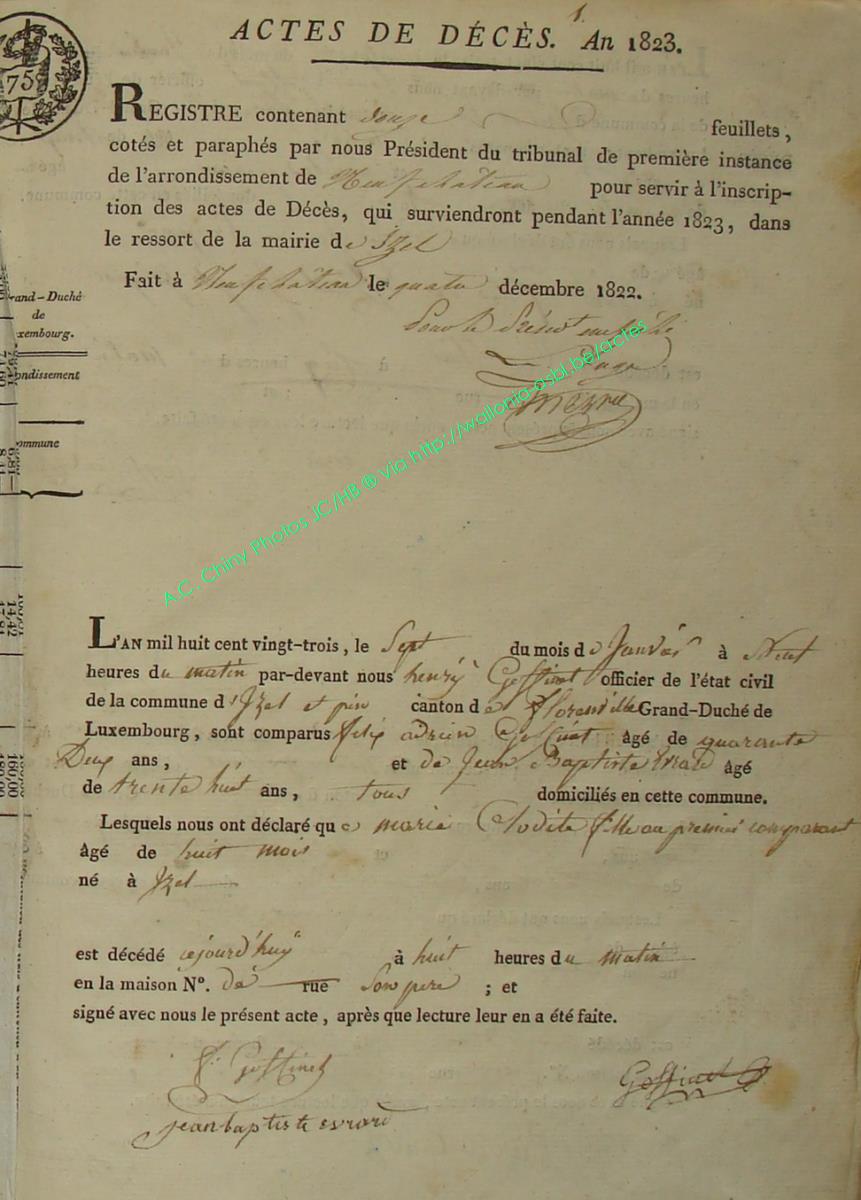 1.
ACTES DE DÉCÈS. An 1823.
75
REGISTRE contenant douze feuillets,
cotés et paraphés par nous Président du tribunal de première instance
de l'arrondissement de Neufchâteau pour servir à l'inscrip-
tion des actes de Décès, qui surviendront pendant l'année 1823, dans
le ressort de la mairie de Izel
Fait à Neufchâteau le quatre décembre 1822.
Grand-Duché
de
Luxembourg.
ondissement
ommune
A.C. Chiny Photos JC/HB ® via http://wallonia-asbl.be/actes
L'AN mil huit cent vingt-trois, le Sept du mois de Janvier à Neuf
heures du matin par-devant nous henry Goffinet officier de l'état civil
de la commune d'Izel et pin canton de Florenville Grand-Duché de
Luxembourg, sont comparus felix adrien Goffinet âgé de quarante
Deux ans, et de Jean Baptiste Evrard âgé
de trente huit ans, tous domiciliés en cette commune.
Lesquels nous ont déclaré que marie fille au premier comparant
âgé de huit mois
né à Izel
est décédé cejourd'huy à huit heures du matin
en la maison N°. de rue Son pere ; et
signé avec nous le présent acte, après que lecture leur en a été faite.
f. Goffinet
Goffinet
jean baptiste evrard